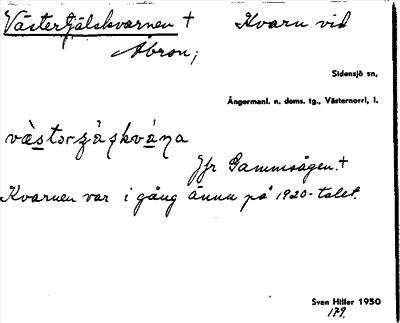 Västertjälskvarnen † Kvarn vid
Åbron;
Sidensjö sn,
Ångermanl. n. doms. tg., Västernorrl. l.
Jfr Gammsågen. †
Kvarnen var i gång ännu på 1920-talet.
Sven Hiller 1950
179.